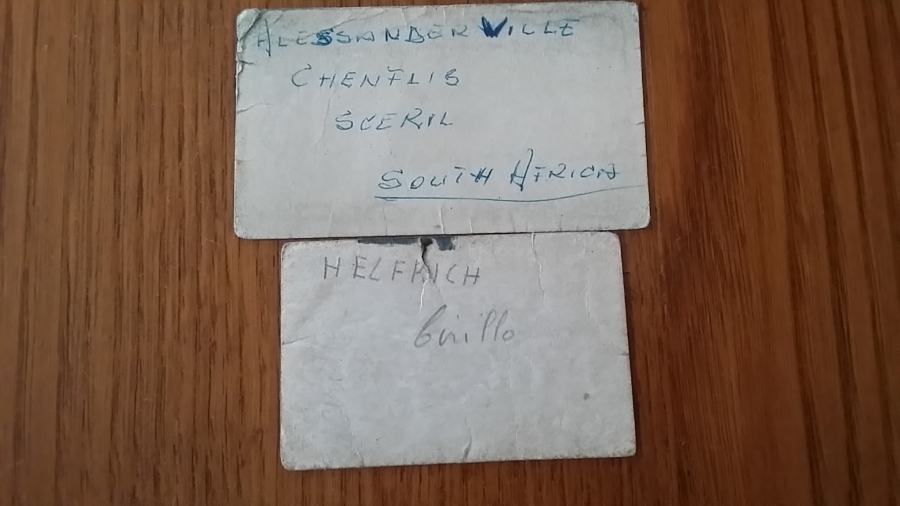 ALESSANDERVILLE
CHENFLIS
SCERIL
SOUTH AFRICA
HELFRICH
Cirillo